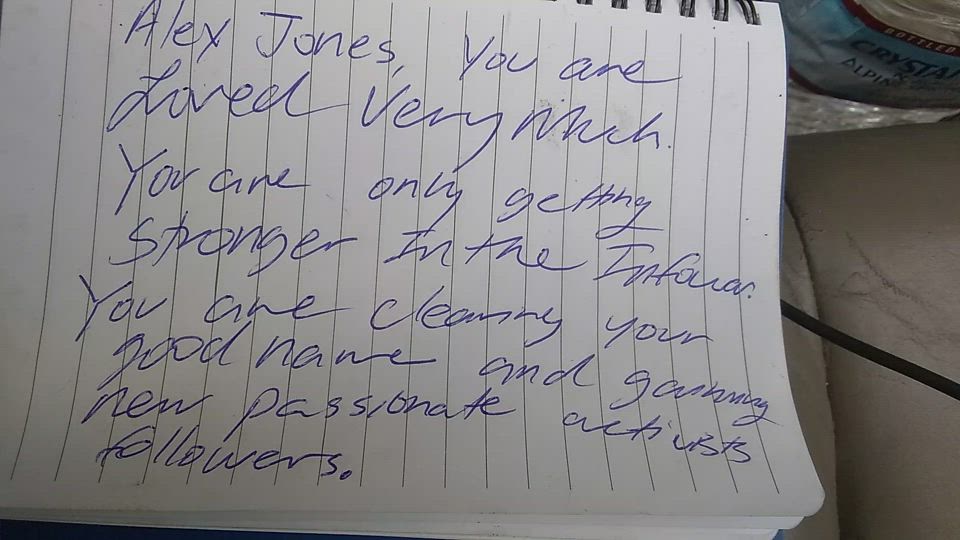 Alex Jones, You are
Loved Very Much.
You are only getting
Stronger In the Infowar.
You are cleaning your
good name and gaining
new passionate activists
followers.
BOTTLED
CRYSTA
ALPIN